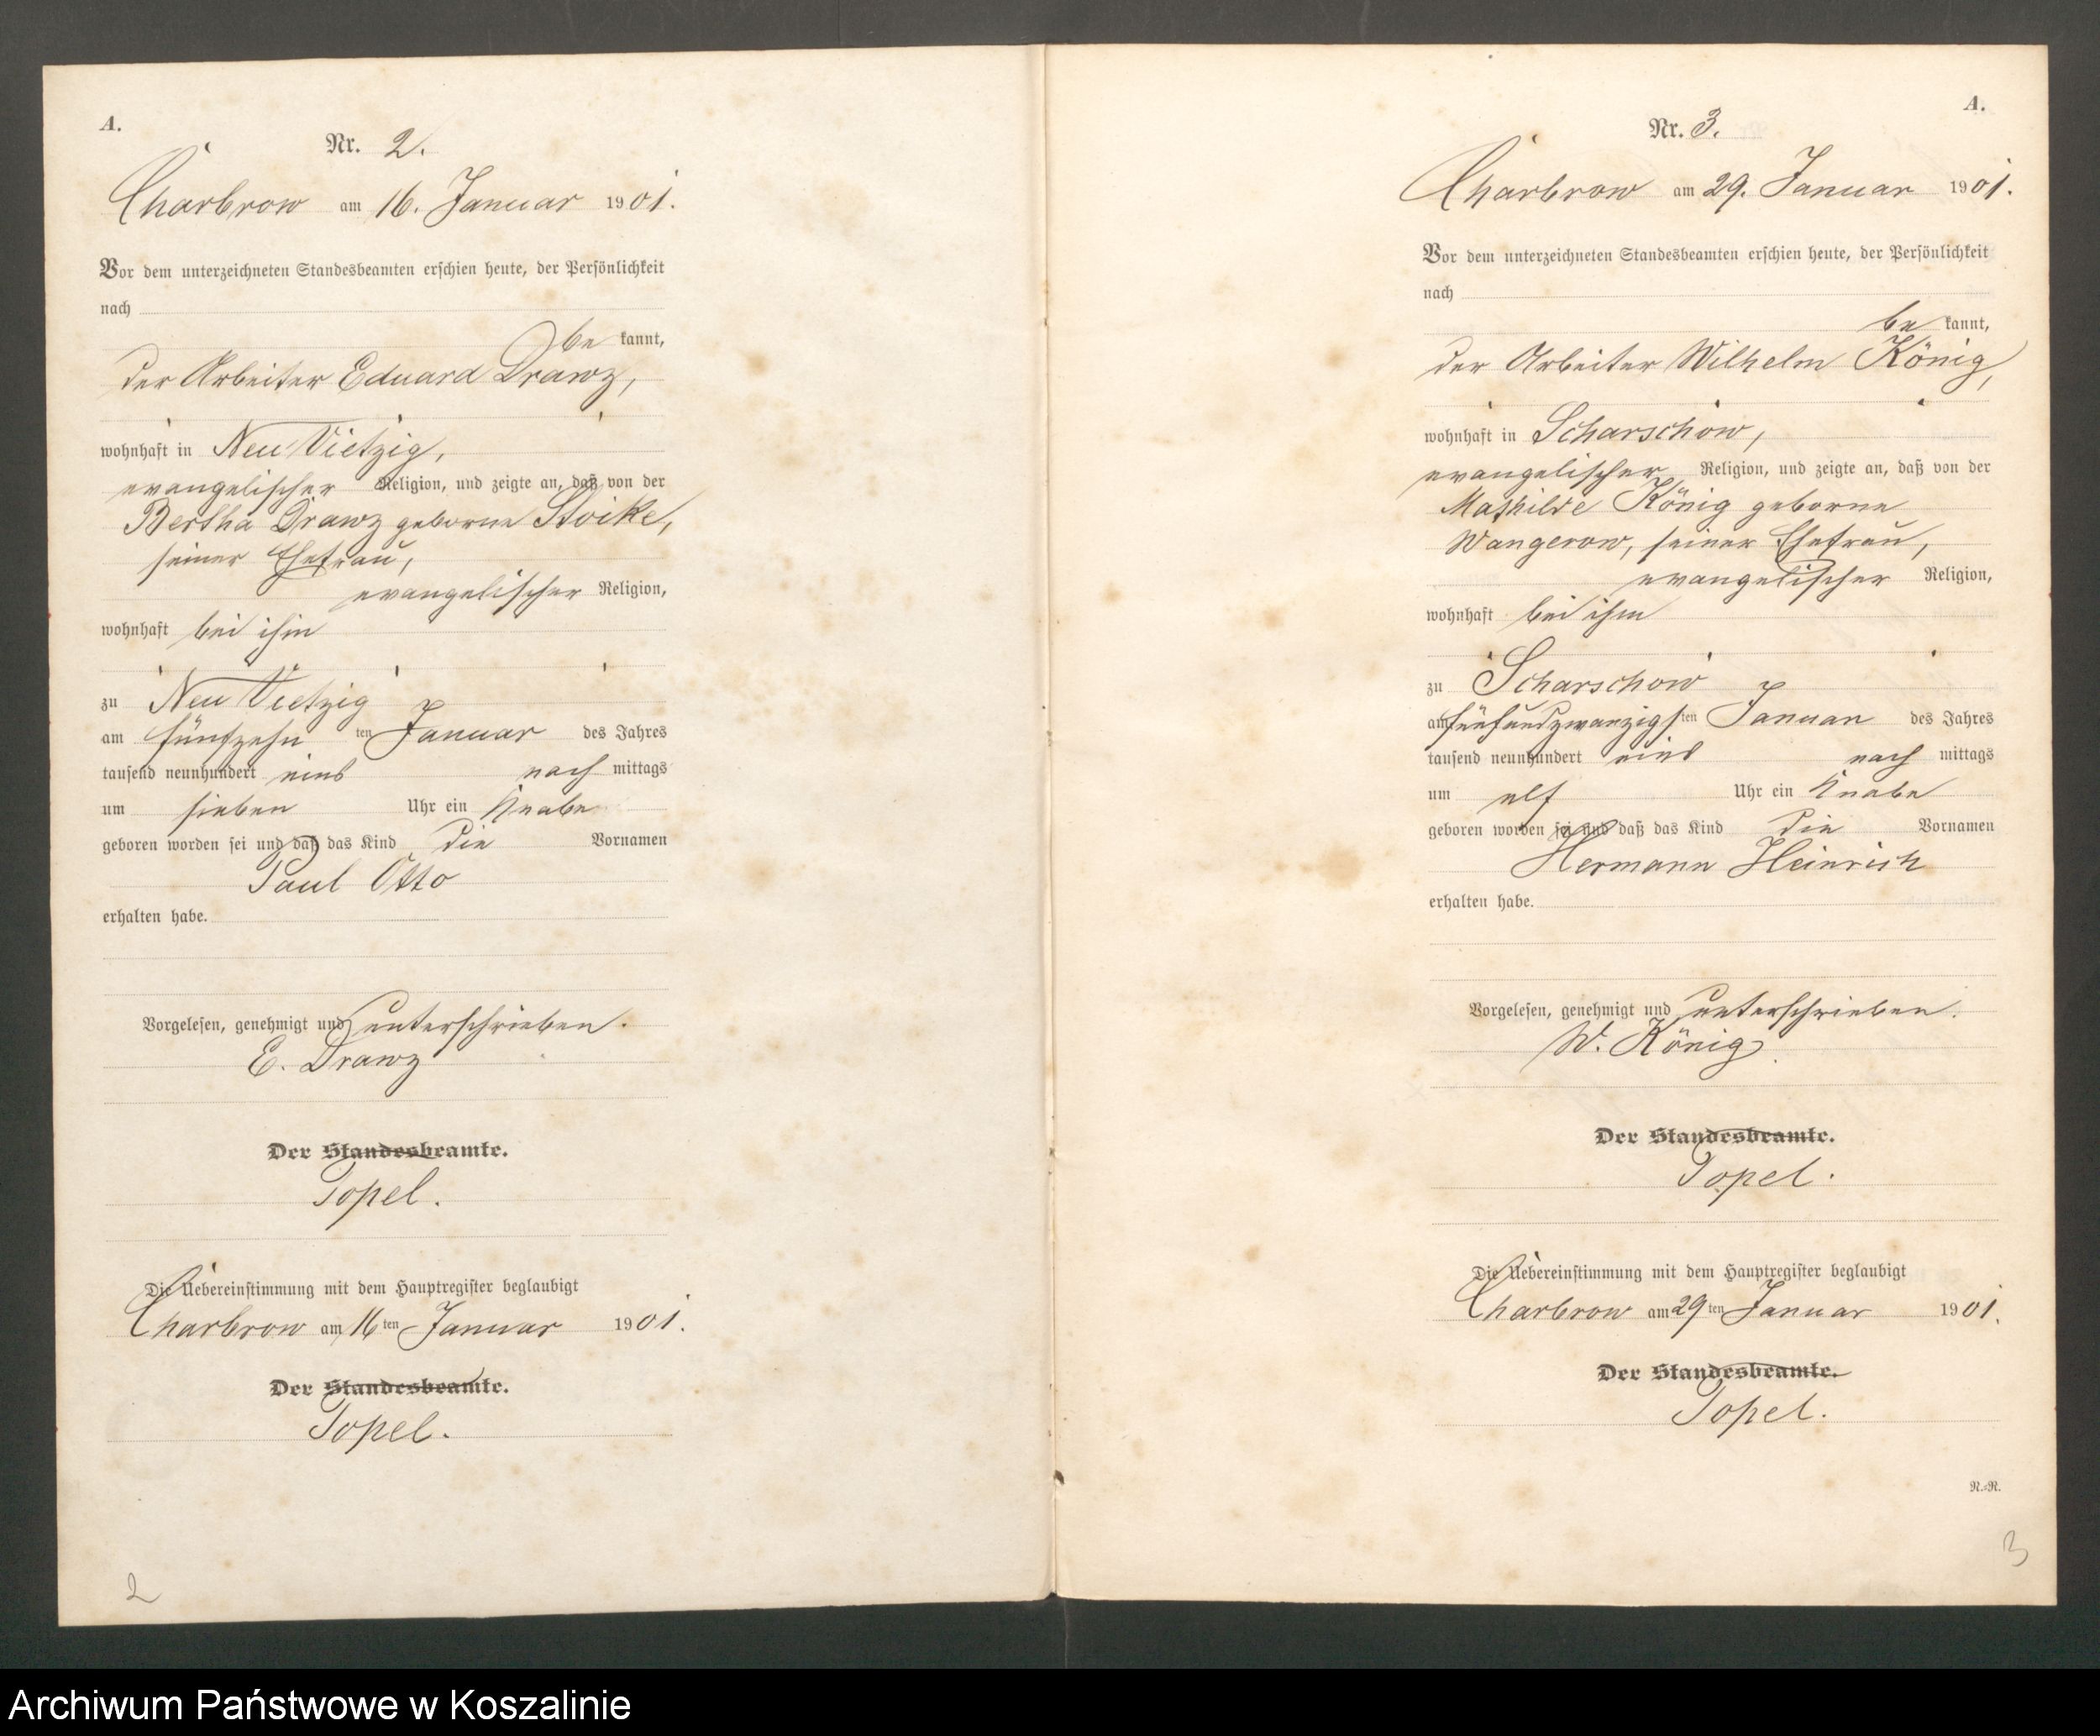 A.
Nr. 2.
Charbrow am 16. Januar 1901.
Vor dem unterzeichneten Standesbeamten erschien heute, der Persönlichkeit
nach
be kannt,
der Arbeiter Eduard Drawz,
wohnhaft in Neu Vietzig,
evangelischer Religion, und zeigte an, daß von der
Bertha Drawz geborne Stoike,
seiner Ehefrau,
evangelischer Religion,
wohnhaft bei ihm
zu Neu Vietzig
am fünfzehn ten Januar des Jahres
tausend neunhundert eins nach mittags
um sieben Uhr ein Knabe
geboren worden sei und daß das Kind die Vornamen
Paul Otto
erhalten habe.
Vorgelesen, genehmigt und unterschrieben.
E. Drawz
Der Standesbeamte.
Topel.
Die Uebereinstimmung mit dem Hauptregister beglaubigt
Charbrow am 16 ten Januar 1901.
Der Standesbeamte.
Topel.
2
A.
Nr. 3.
Charbrow am 29. Januar 1901.
Vor dem unterzeichneten Standesbeamten erschien heute, der Persönlichkeit
nach
be kannt,
der Arbeiter Wilhelm König,
wohnhaft in Scharschow,
evangelischer Religion, und zeigte an, daß von der
Mathilde König geborne
Wangerow, seiner Ehefrau,
evangelischer Religion,
wohnhaft bei ihm
zu Scharschow
am fünfundzwanzigs ten Januar des Jahres
tausend neunhundert eins nach mittags
um elf Uhr ein Knabe
geboren worden sei und daß das Kind die Vornamen
Hermann Heinrich
erhalten habe.
Vorgelesen, genehmigt und unterschrieben.
W. König.
Der Standesbeamte.
Topel.
Die Uebereinstimmung mit dem Hauptregister beglaubigt
Charbrow am 29 ten Januar 1901.
Der Standesbeamte.
Topel.
R.=R.
3
Archiwum Państwowe w Koszalinie